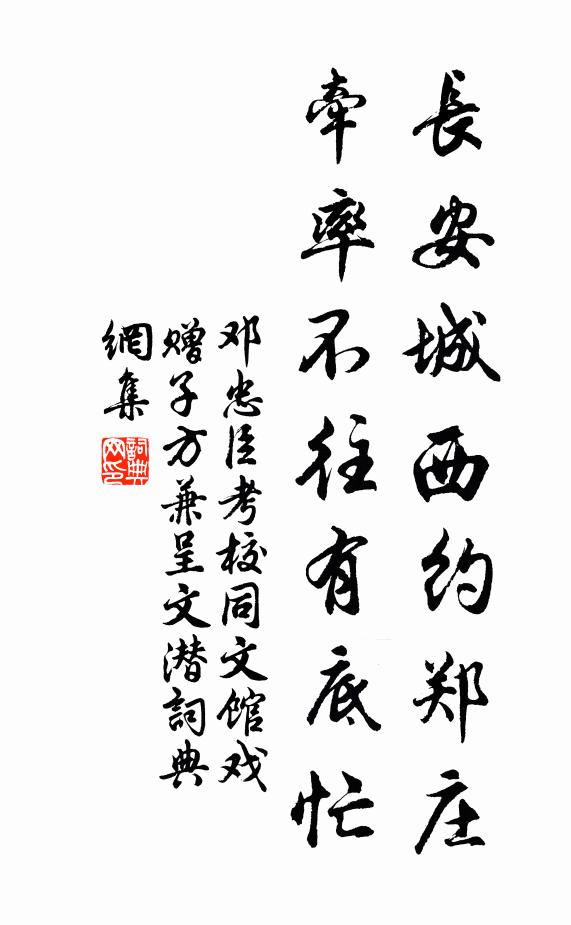 長安城西约郑庄
牵率不往有底忙
邓忠臣考校同文馆戏
赠子方兼呈文潜詞典
網集
詞典
网印